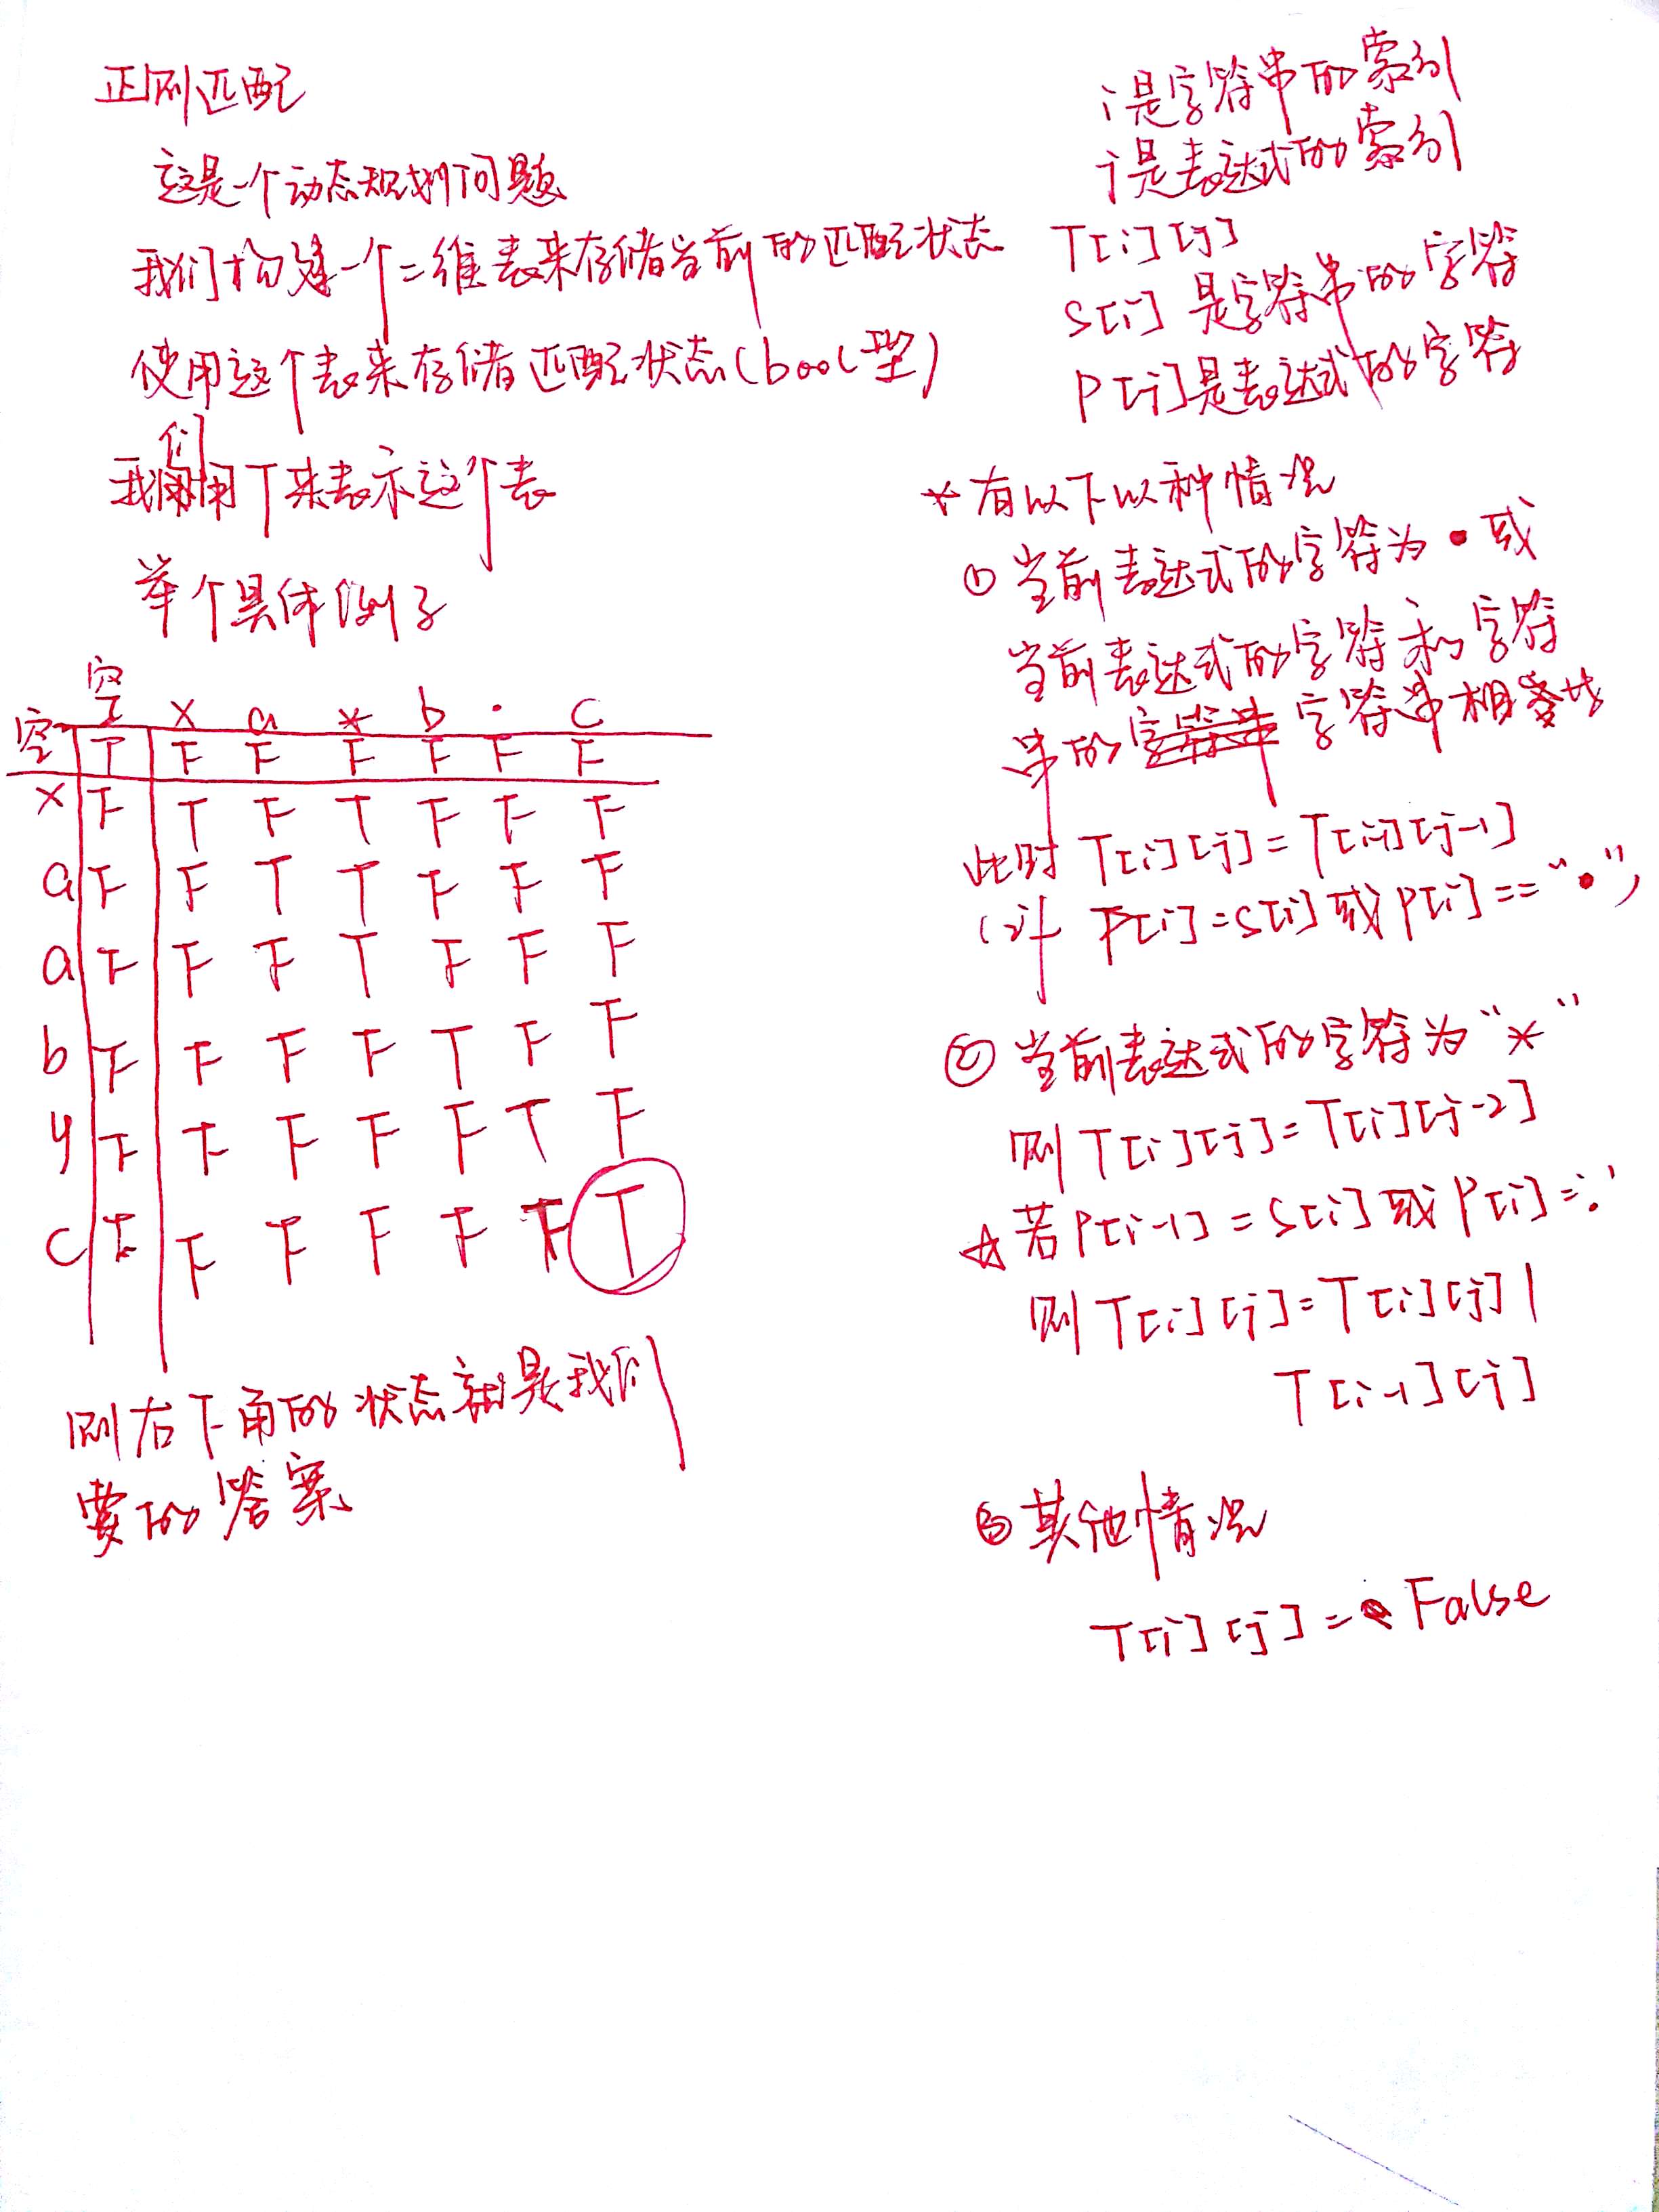 正则匹配
这是一个动态规划问题
我们构建一个二维表来存储当前的匹配状态
使用这个表来存储匹配状态(bool型)
们
我用T来表示这个表
举个具体例子
空 x a * b . c
空 T F F F F F F
x F T F T F F F
a F F T T F F F
a F F F T F F F
b F F F F T F F
y F F F F F T F
c F F F F F F T
则右下角的状态就是我们
要的答案
i是字符串的索引
j是表达式的索引
T[i][j]
S[i] 是字符串的字符
P[j]是表达式的字符
* 有以下以种情况
① 当前表达式的字符为 • 或
当前表达式的字符和字符
串的字符串 字符串相
此时 T[i][j]=T[i-1][j-1]
P[i]=S[i] 或 P[i]=="•")
② 当前表达式的字符为 "*"
则 T[i][j]=T[i][j-2]
☆若 P[i-1]=S[i] 或 P[i]='.'
则 T[i][j]=T[i][j] |
T[i-1][j]
③ 其他情况
T[i][j]= False